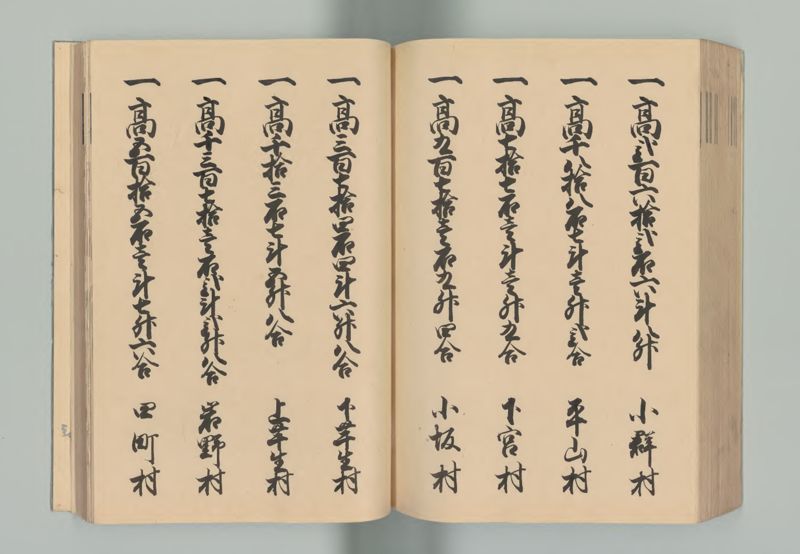 一高弐百六拾弐石六斗八舛 小群村
一高千八拾八石七斗壱舛弐合 平山村
一高七拾七石壱斗壱舛五合 下宮村
一高五百七拾壱石五舛四合 小坂村
一高三百七拾四石四斗六舛八合 下芋生村
一高千拾三石七斗五舛八合 上芋生村
一高千三百七拾壱石弐斗弐舛八合 岩野村
一高五百拾五石壱斗七舛六合 田町村